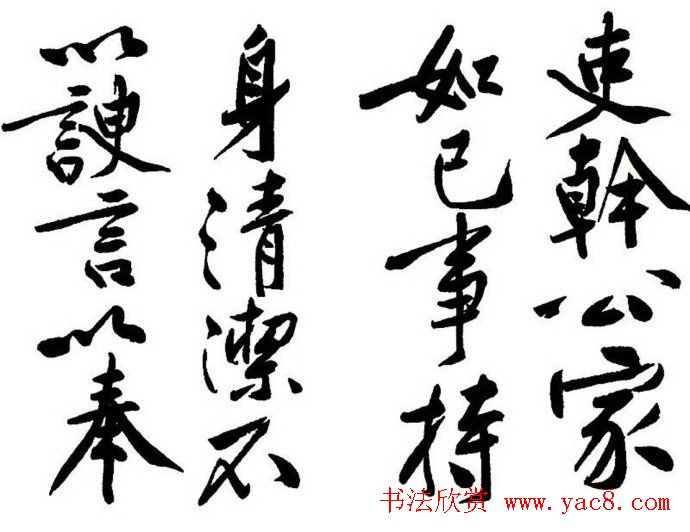 吏幹公家
如己事持
身清潔不
以諛言以奉
书法欣赏 www.yac8.com